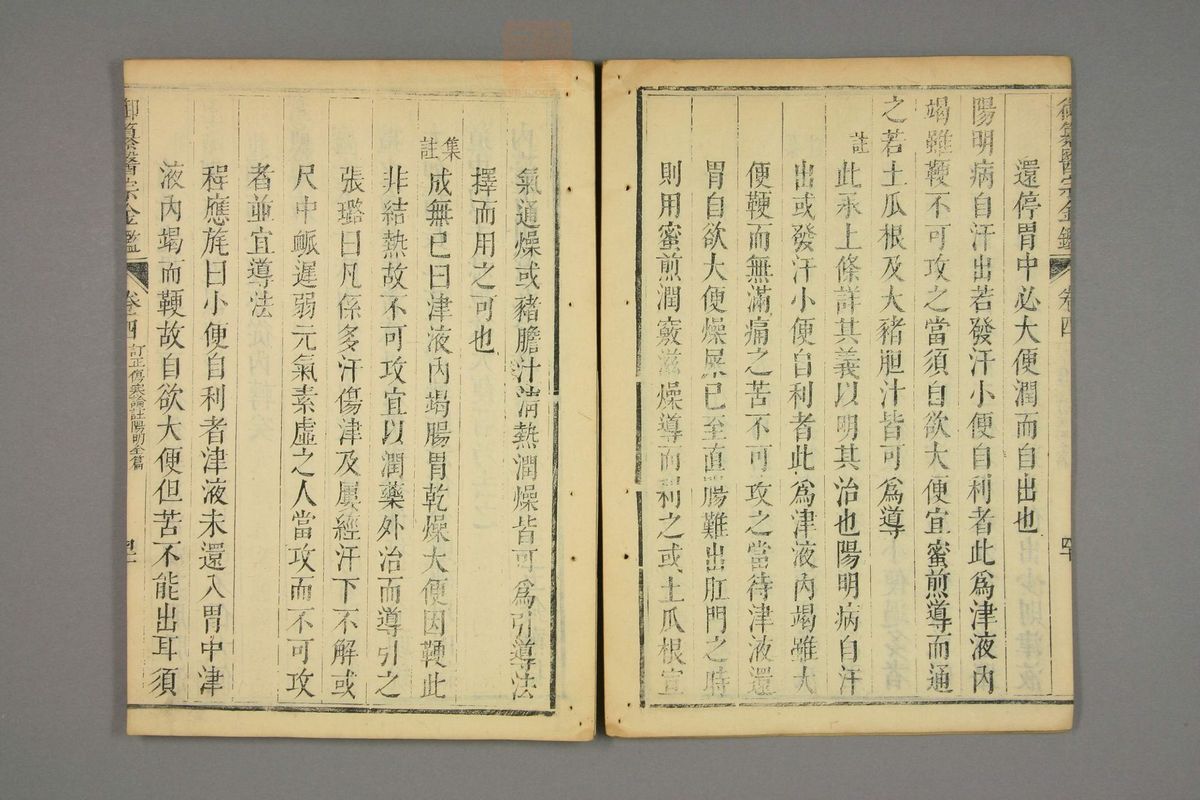 御纂醫宗金鑑 卷四
還停胃中必大便潤而自出也
陽明病自汗出若發汗小便自利者此爲津液內
竭雖鞕不可攻之當須自欲大便宜蜜煎導而通
之若土瓜根及大豬胆汁皆可爲導
註
此承上條詳其義以明其治也陽明病自汗
出或發汗小便自利者此爲津液內竭雖大
便鞕而無滿痛之苦不可攻之當待津液還
胃自欲大便燥屎已至直腸難出肛門之時
則用蜜煎潤竅滋燥導而利之或土瓜根宣
內氣通燥或豬膽汁清熱潤燥皆可爲引導法
擇而用之可也
集註
成無已曰津液內竭腸胃乾燥大便因鞕此
非結熱故不可攻宜以潤藥外治而導引之
張璐曰凡係多汗傷津及屢經汗下不解或
尺中脈遲弱元氣素虛之人當攻而不可攻
者並宜導法
程應旄曰小便自利者津液未還入胃中津
液內竭而鞕故自欲大便但苦不能出耳須
御纂醫宗金鑑 卷四 訂正傷寒論註陽明全篇